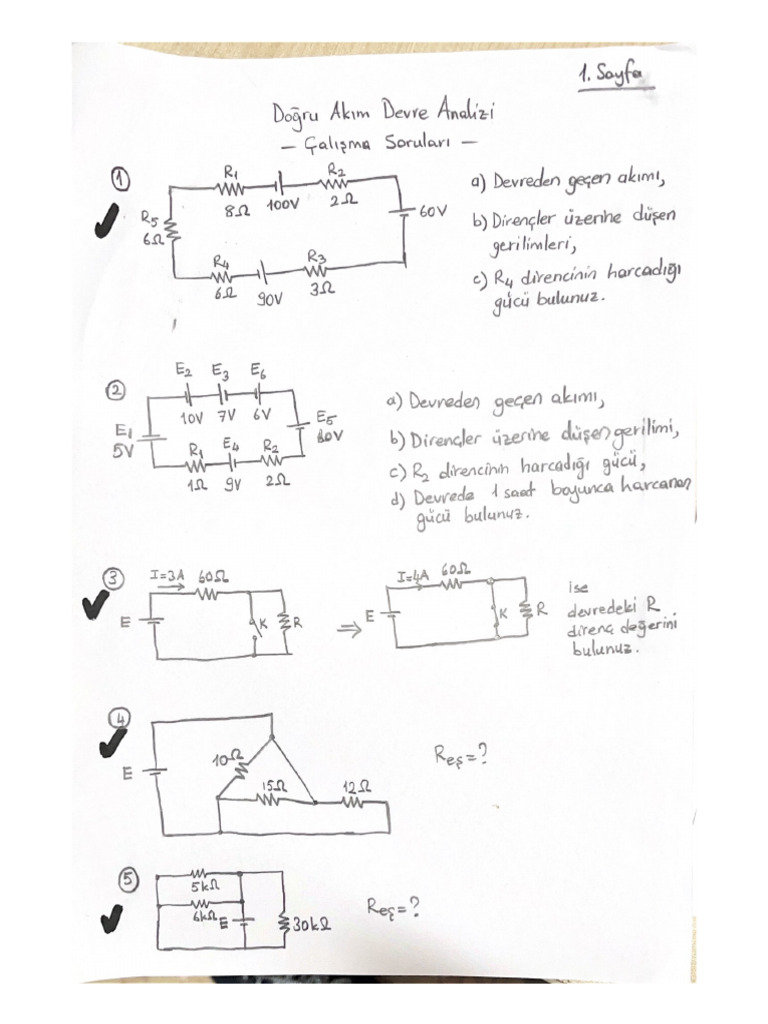 1. Sayfa
Doğru Akım Devre Analizi
— Çalışma Soruları —
①
R1
R2
8Ω
100V
2Ω
60V
R5
6Ω
R4
R3
6Ω
90V
3Ω
a) Devreden geçen akımı,
b) Dirençler üzerine düşen
gerilimleri,
c) R4 direncinin harcadığı
gücü bulunuz.
②
E2 E3 E6
10V 7V 6V
E1
5V
E5
R1 E4 R2
1Ω 9V 2Ω
a) Devreden geçen akımı,
b) Dirençler üzerine düşen gerilimi,
c) R2 direncinin harcadığı gücü,
d) Devrede 1 saat boyunca harcanan
gücü bulunuz.
③
I=3A 60Ω
E
K
R
⇒
I=4A 60Ω
E
K
R
ise
devredeki R
direnç değerini
bulunuz.
④
10Ω
E
15Ω
12Ω
Reş=?
⑤
5kΩ
6kΩ
E
30kΩ
Reş=?